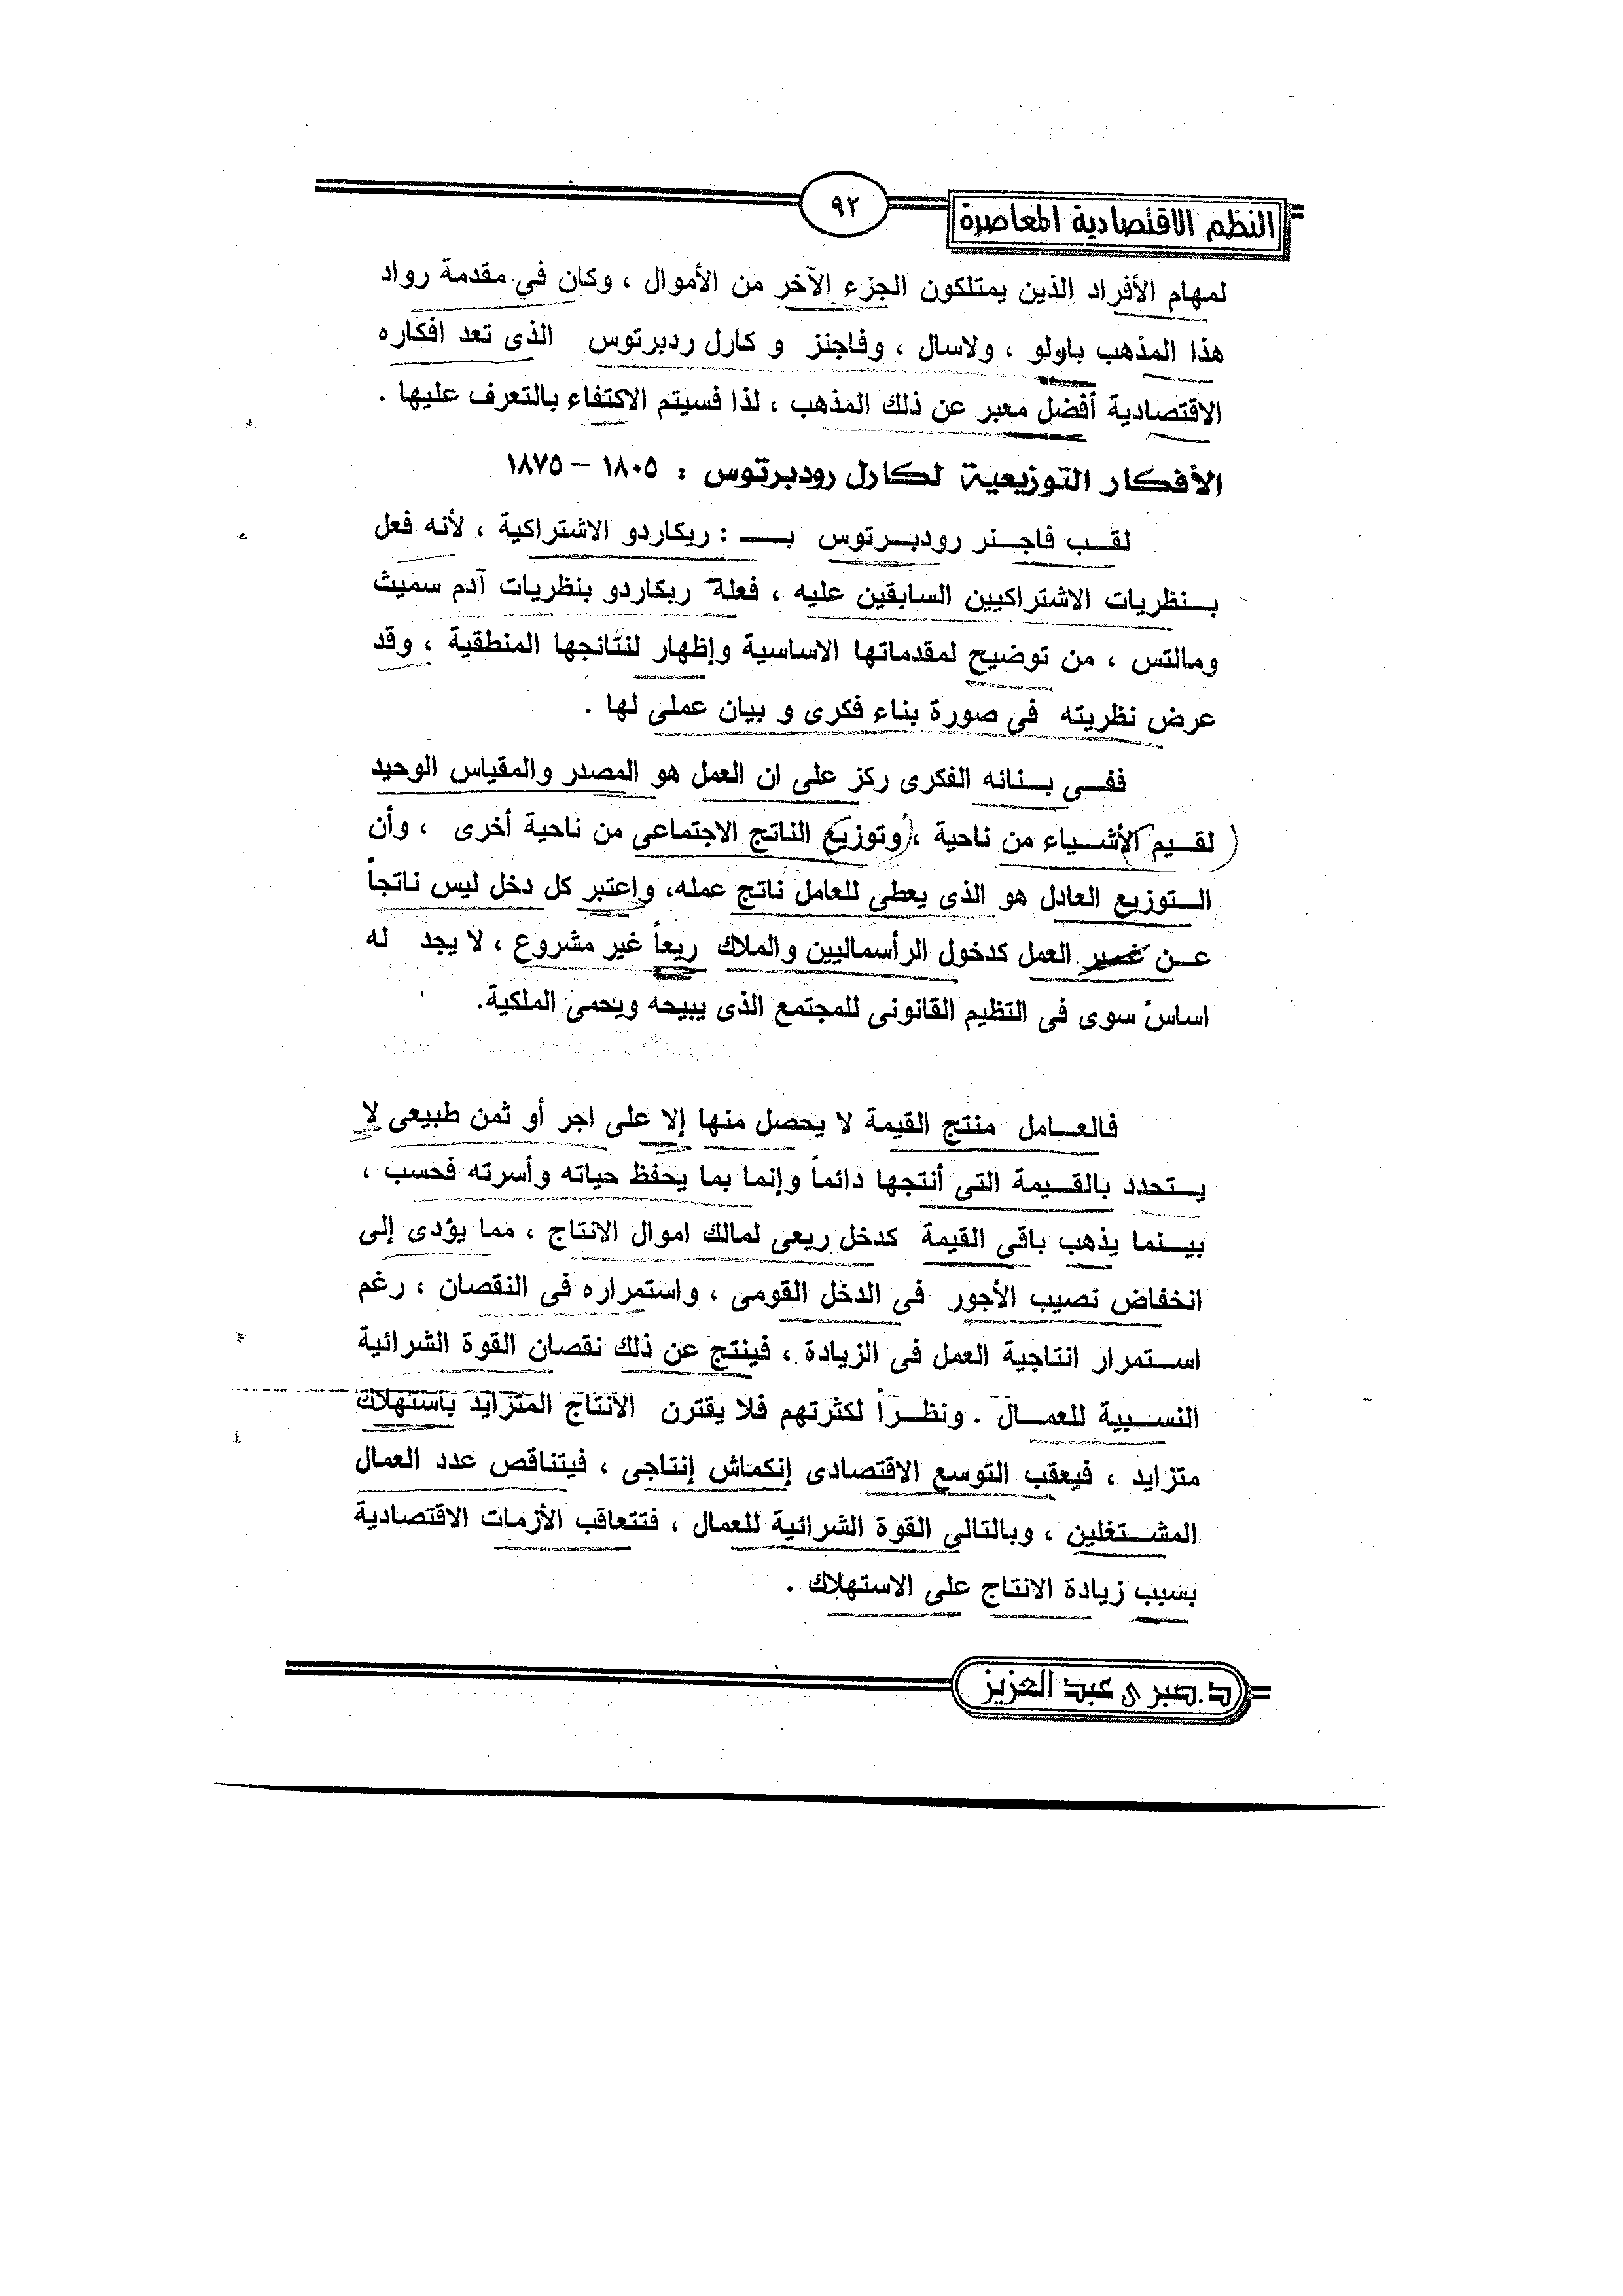 النظم الاقتصادية المعاصرة
٩٢
لمهام الأفراد الذين يمتلكون الجزء الآخر من الأموال ، وكان في مقدمة رواد
هذا المذهب باولو ، ولاسال ، وفاجنز و كارل ردبرتوس الذى تعد افكاره
الاقتصادية أفضل معبر عن ذلك المذهب ، لذا فسيتم الاكتفاء بالتعرف عليها .
الأفكار التوزيعية لكارل رودبرتوس : ١٨٠٥ – ١٨٧٥
لقب فاجنر رودبرتوس بـ : ريكاردو الاشتراكية ، لأنه فعل
بنظريات الاشتراكيين السابقين عليه ، فعلة ريكاردو بنظريات آدم سميث
ومالتس ، من توضيح لمقدماتها الاساسية وإظهار لنتائجها المنطقية ، وقد
عرض نظريته فى صورة بناء فكرى و بيان عملى لها .
ففى بنائه الفكرى ركز على ان العمل هو المصدر والمقياس الوحيد
لقيم الأشياء من ناحية ، وتوزيع الناتج الاجتماعى من ناحية أخرى ، وأن
التوزيع العادل هو الذى يعطى للعامل ناتج عمله، واعتبر كل دخل ليس ناتجاً
عن غير العمل كدخول الرأسماليين والملاك ريعاً غير مشروع ، لا يجد له
اساسً سوى فى التظيم القانونى للمجتمع الذى يبيحه ويحمى الملكية.
فالعامل منتج القيمة لا يحصل منها إلا على اجر أو ثمن طبيعى لا
يتحدد بالقيمة التى أنتجها دائماً وإنما بما يحفظ حياته وأسرته فحسب ،
بينما يذهب باقى القيمة كدخل ريعى لمالك اموال الانتاج ، مما يؤدى إلى
انخفاض نصيب الأجور فى الدخل القومى ، واستمراره فى النقصان ، رغم
استمرار انتاجية العمل فى الزيادة ، فينتج عن ذلك نقصان القوة الشرائية
النسبية للعمال . ونظراً لكثرتهم فلا يقترن الانتاج المتزايد باستهلاك
متزايد ، فيعقب التوسع الاقتصادى إنكماش إنتاجى ، فيتناقص عدد العمال
المشتغلين ، وبالتالى القوة الشرائية للعمال ، فتتعاقب الأزمات الاقتصادية
بسبب زيادة الانتاج على الاستهلاك .
د.صبرى عبد العزيز